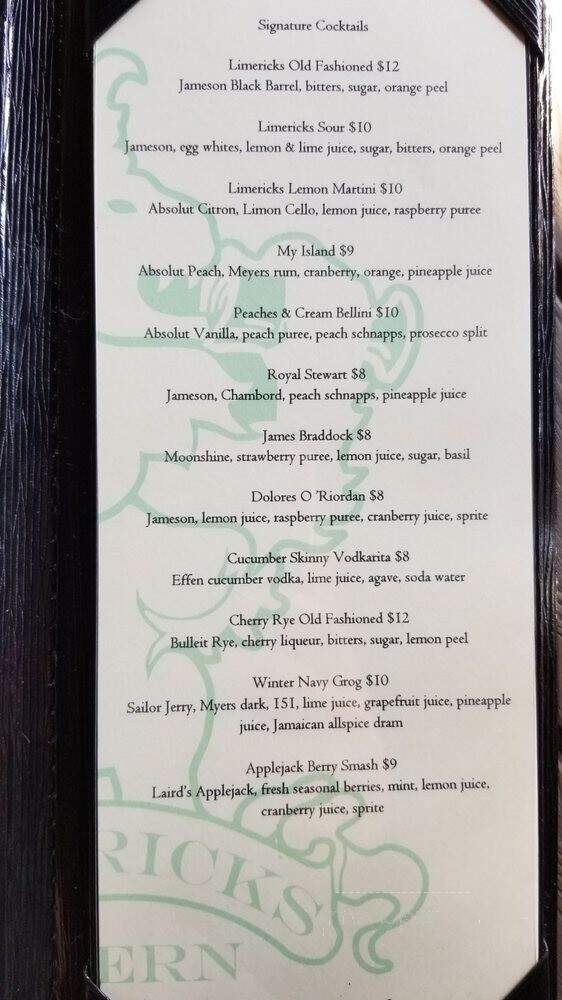 Signature Cocktails
Limericks Old Fashioned $12
Jameson Black Barrel, bitters, sugar, orange peel
Limericks Sour $10
Jameson, egg whites, lemon & lime juice, sugar, bitters, orange peel
Limericks Lemon Martini $10
Absolut Citron, Limon Cello, lemon juice, raspberry puree
My Island $9
Absolut Peach, Meyers rum, cranberry, orange, pineapple juice
Peaches & Cream Bellini $10
Absolut Vanilla, peach puree, peach schnapps, prosecco split
Royal Stewart $8
Jameson, Chambord, peach schnapps, pineapple juice
James Braddock $8
Moonshine, strawberry puree, lemon juice, sugar, basil
Dolores O 'Riordan $8
Jameson, lemon juice, raspberry puree, cranberry juice, sprite
Cucumber Skinny Vodkarita $8
Effen cucumber vodka, lime juice, agave, soda water
Cherry Rye Old Fashioned $12
Bulleit Rye, cherry liqueur, bitters, sugar, lemon peel
Winter Navy Grog $10
Sailor Jerry, Myers dark, 151, lime juice, grapefruit juice, pineapple
juice, Jamaican allspice dram
Applejack Berry Smash $9
Laird's Applejack, fresh seasonal berries, mint, lemon juice,
cranberry juice, sprite
RICKS
ERN